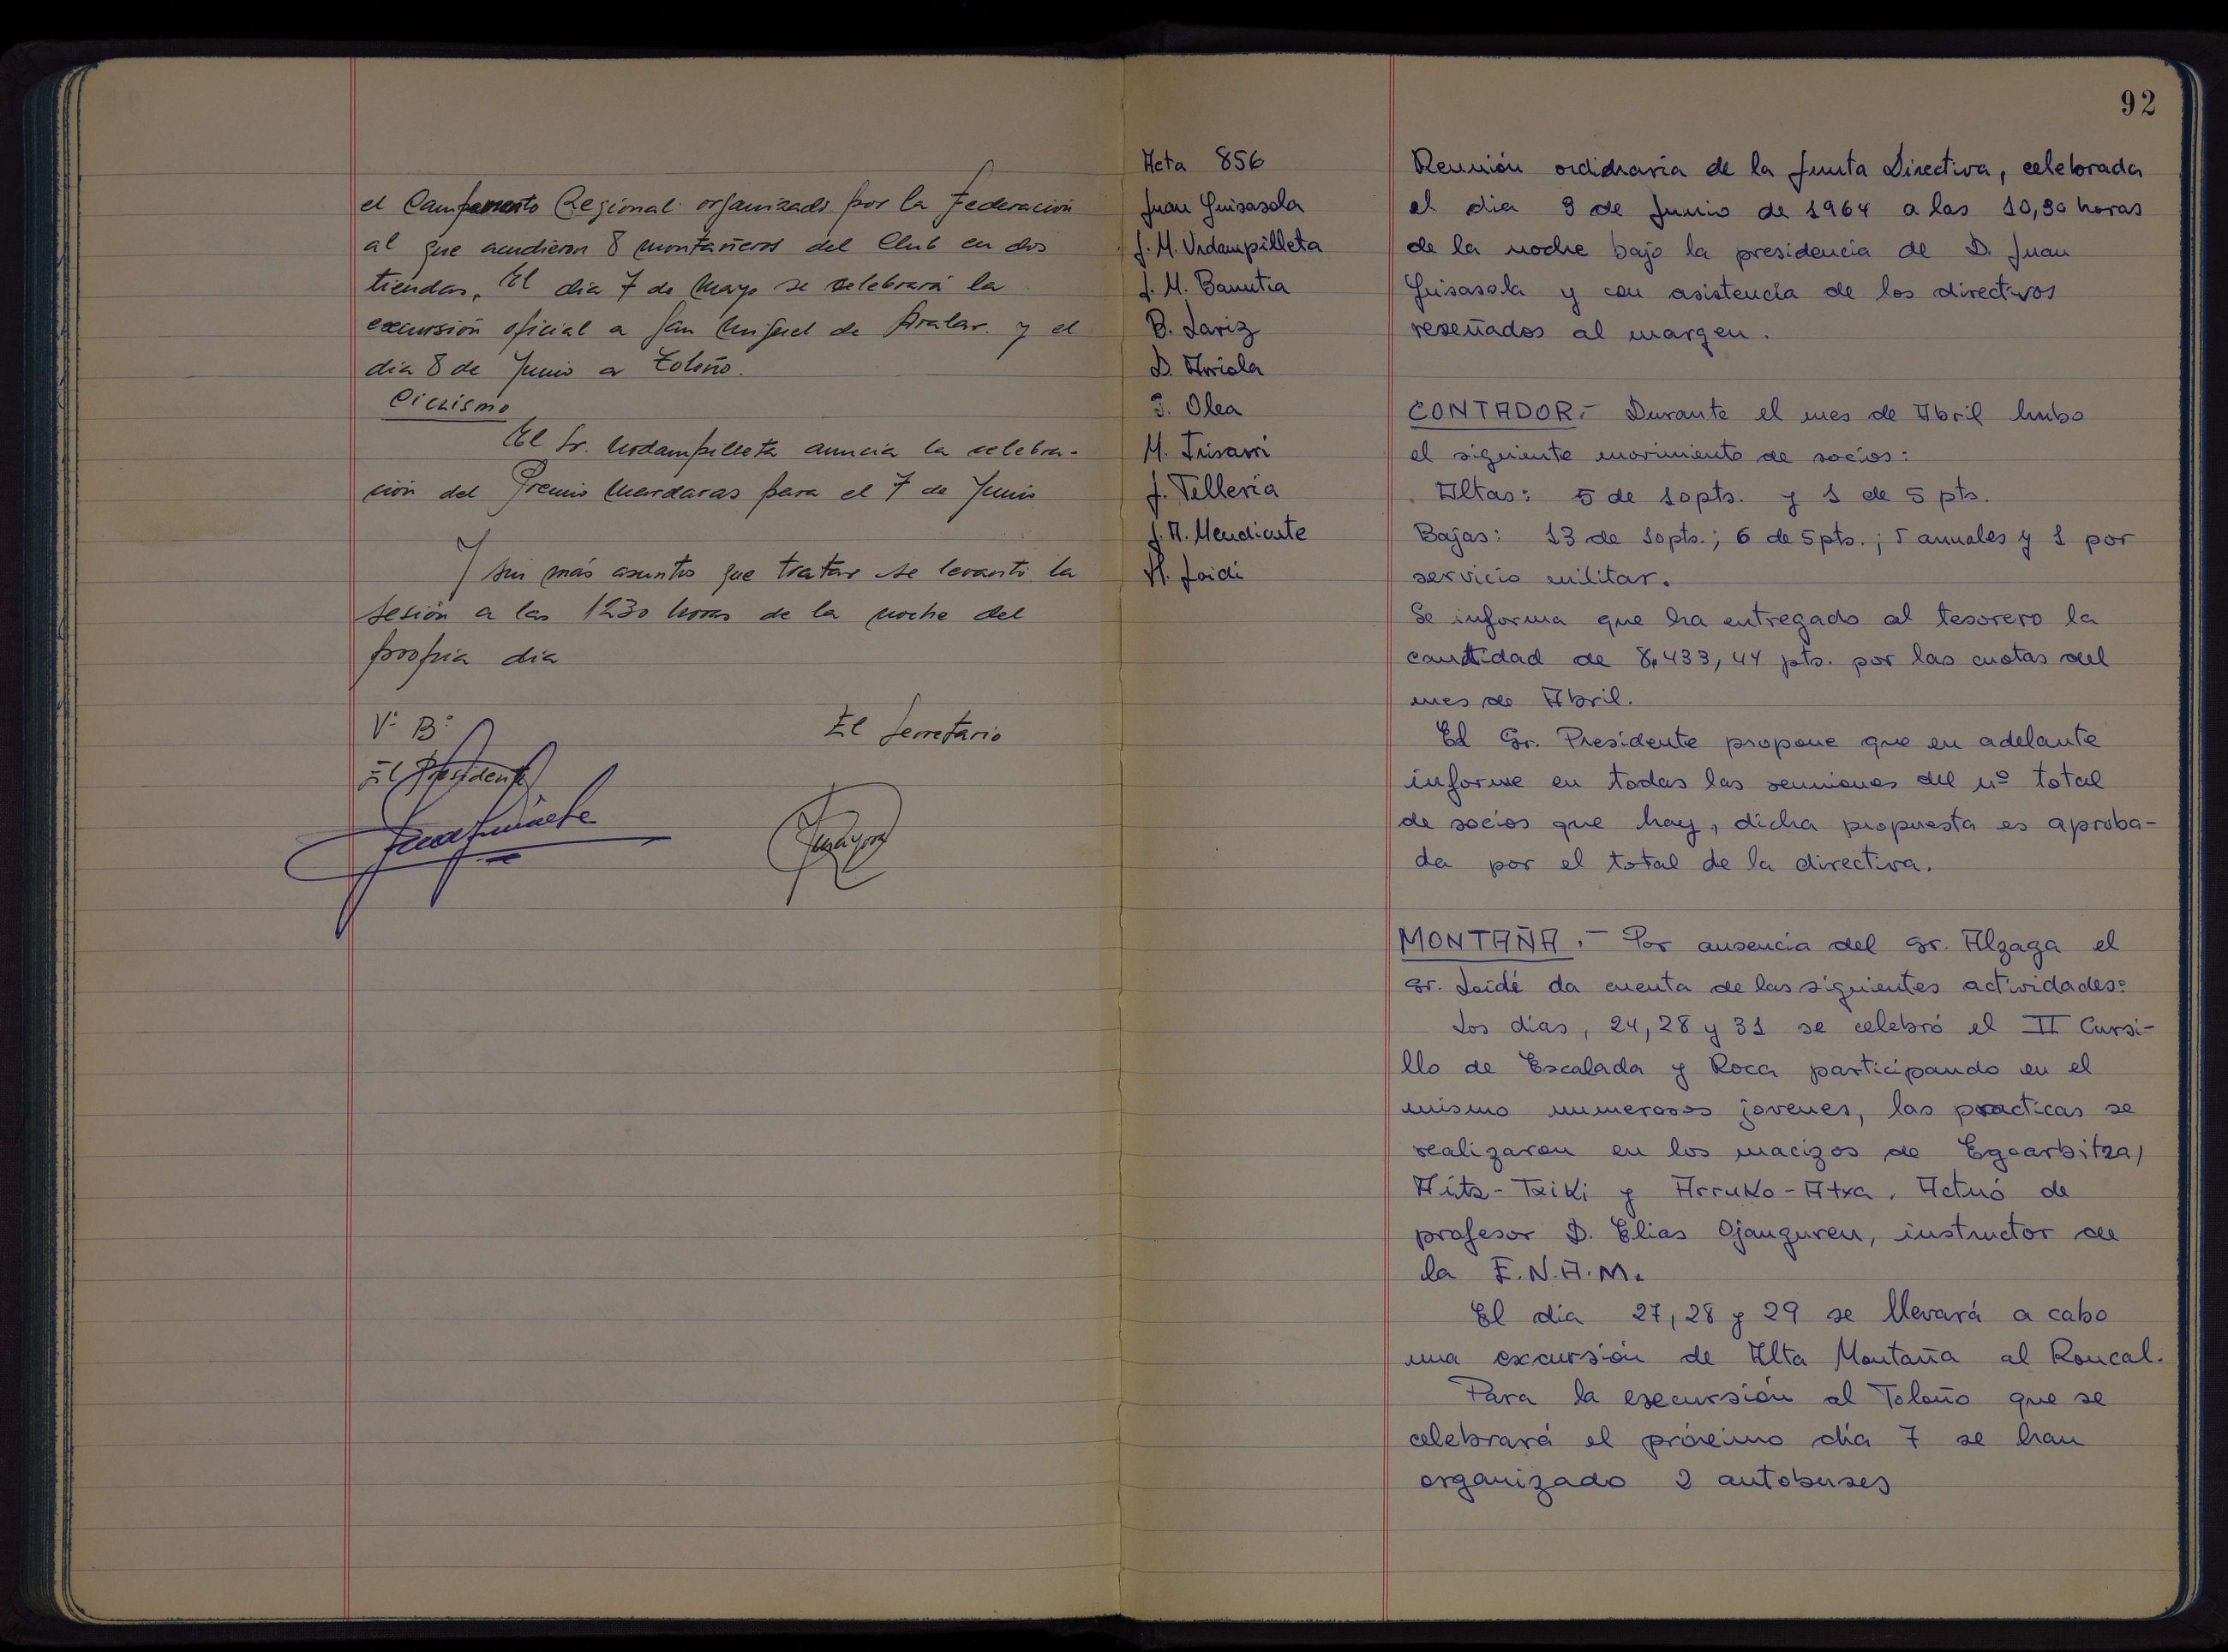 el Campamento Regional organizado por la Federación
al que acudieron 8 montañeros del Club en dos
tiendas. El dia 7 de Mayo se celebrará la
excursión oficial a San Miguel de Aralar. y el
dia 8 de Junio a Toloño.
Ciclismo
El Sr. Urdampilleta anuncia la celebra-
ción del Premio Mardaras para el 7 de Junio
Y sin más asuntos que tratar se levantó la
sesión a las 1230 horas de la noche del
propia dia
Vº Bº
El Presidente
El Secretario
92
Acta 856
Juan Guisasola
J. M. Urdampilleta
J. M. Basutia
B. Lariz
D. Arriola
J. Olea
M. Irisarri
J. Tellería
J. A. Mendicute
A. Loidi
Reunión ordidnaria de la Junta Directiva, celebrada
el dia 3 de Junio de 1964 a las 10,30 horas
de la noche bajo la presidencia de D. Juan
Guisasola y con asistencia de los directivos
reseñados al margen.
CONTADOR.- Durante el mes de Abril hubo
el siguiente movimiento de socios:
Altas: 5 de 10pts. y 1 de 5 pts.
Bajas: 13 de 10pts.; 6 de 5pts.; 5 anuales y 1 por
servicio militar.
Se informa que ha entregado al tesorero la
cantidad de 8,433,44 pts. por las cuotas del
mes de Abril.
El Sr. Presidente propone que en adelante
informe en todas las reuniones del nº total
de socios que hay, dicha propuesta es aproba-
da por el total de la directiva.
MONTAÑA.- Por ausencia del Sr. Alzaga el
Sr. Loidi da cuenta de las siguientes actividades:
Los días, 24, 28 y 31 se celebró el II Cursi-
llo de Escalada y Roca participando en el
mismo numerosos jovenes, las practicas se
realizaron en los macizos de Egoarbitza,
Aitz-Txiki y Arruko-Atxa. Actuó de
profesor D. Elias Ojanguren, instructor de
la E.N.A.M.
El día 27, 28 y 29 se llevará a cabo
una excursión de Alta Montaña al Roncal.
Para la excursión al Toloño que se
celebrará el próximo día 7 se han
organizado 2 autobuses